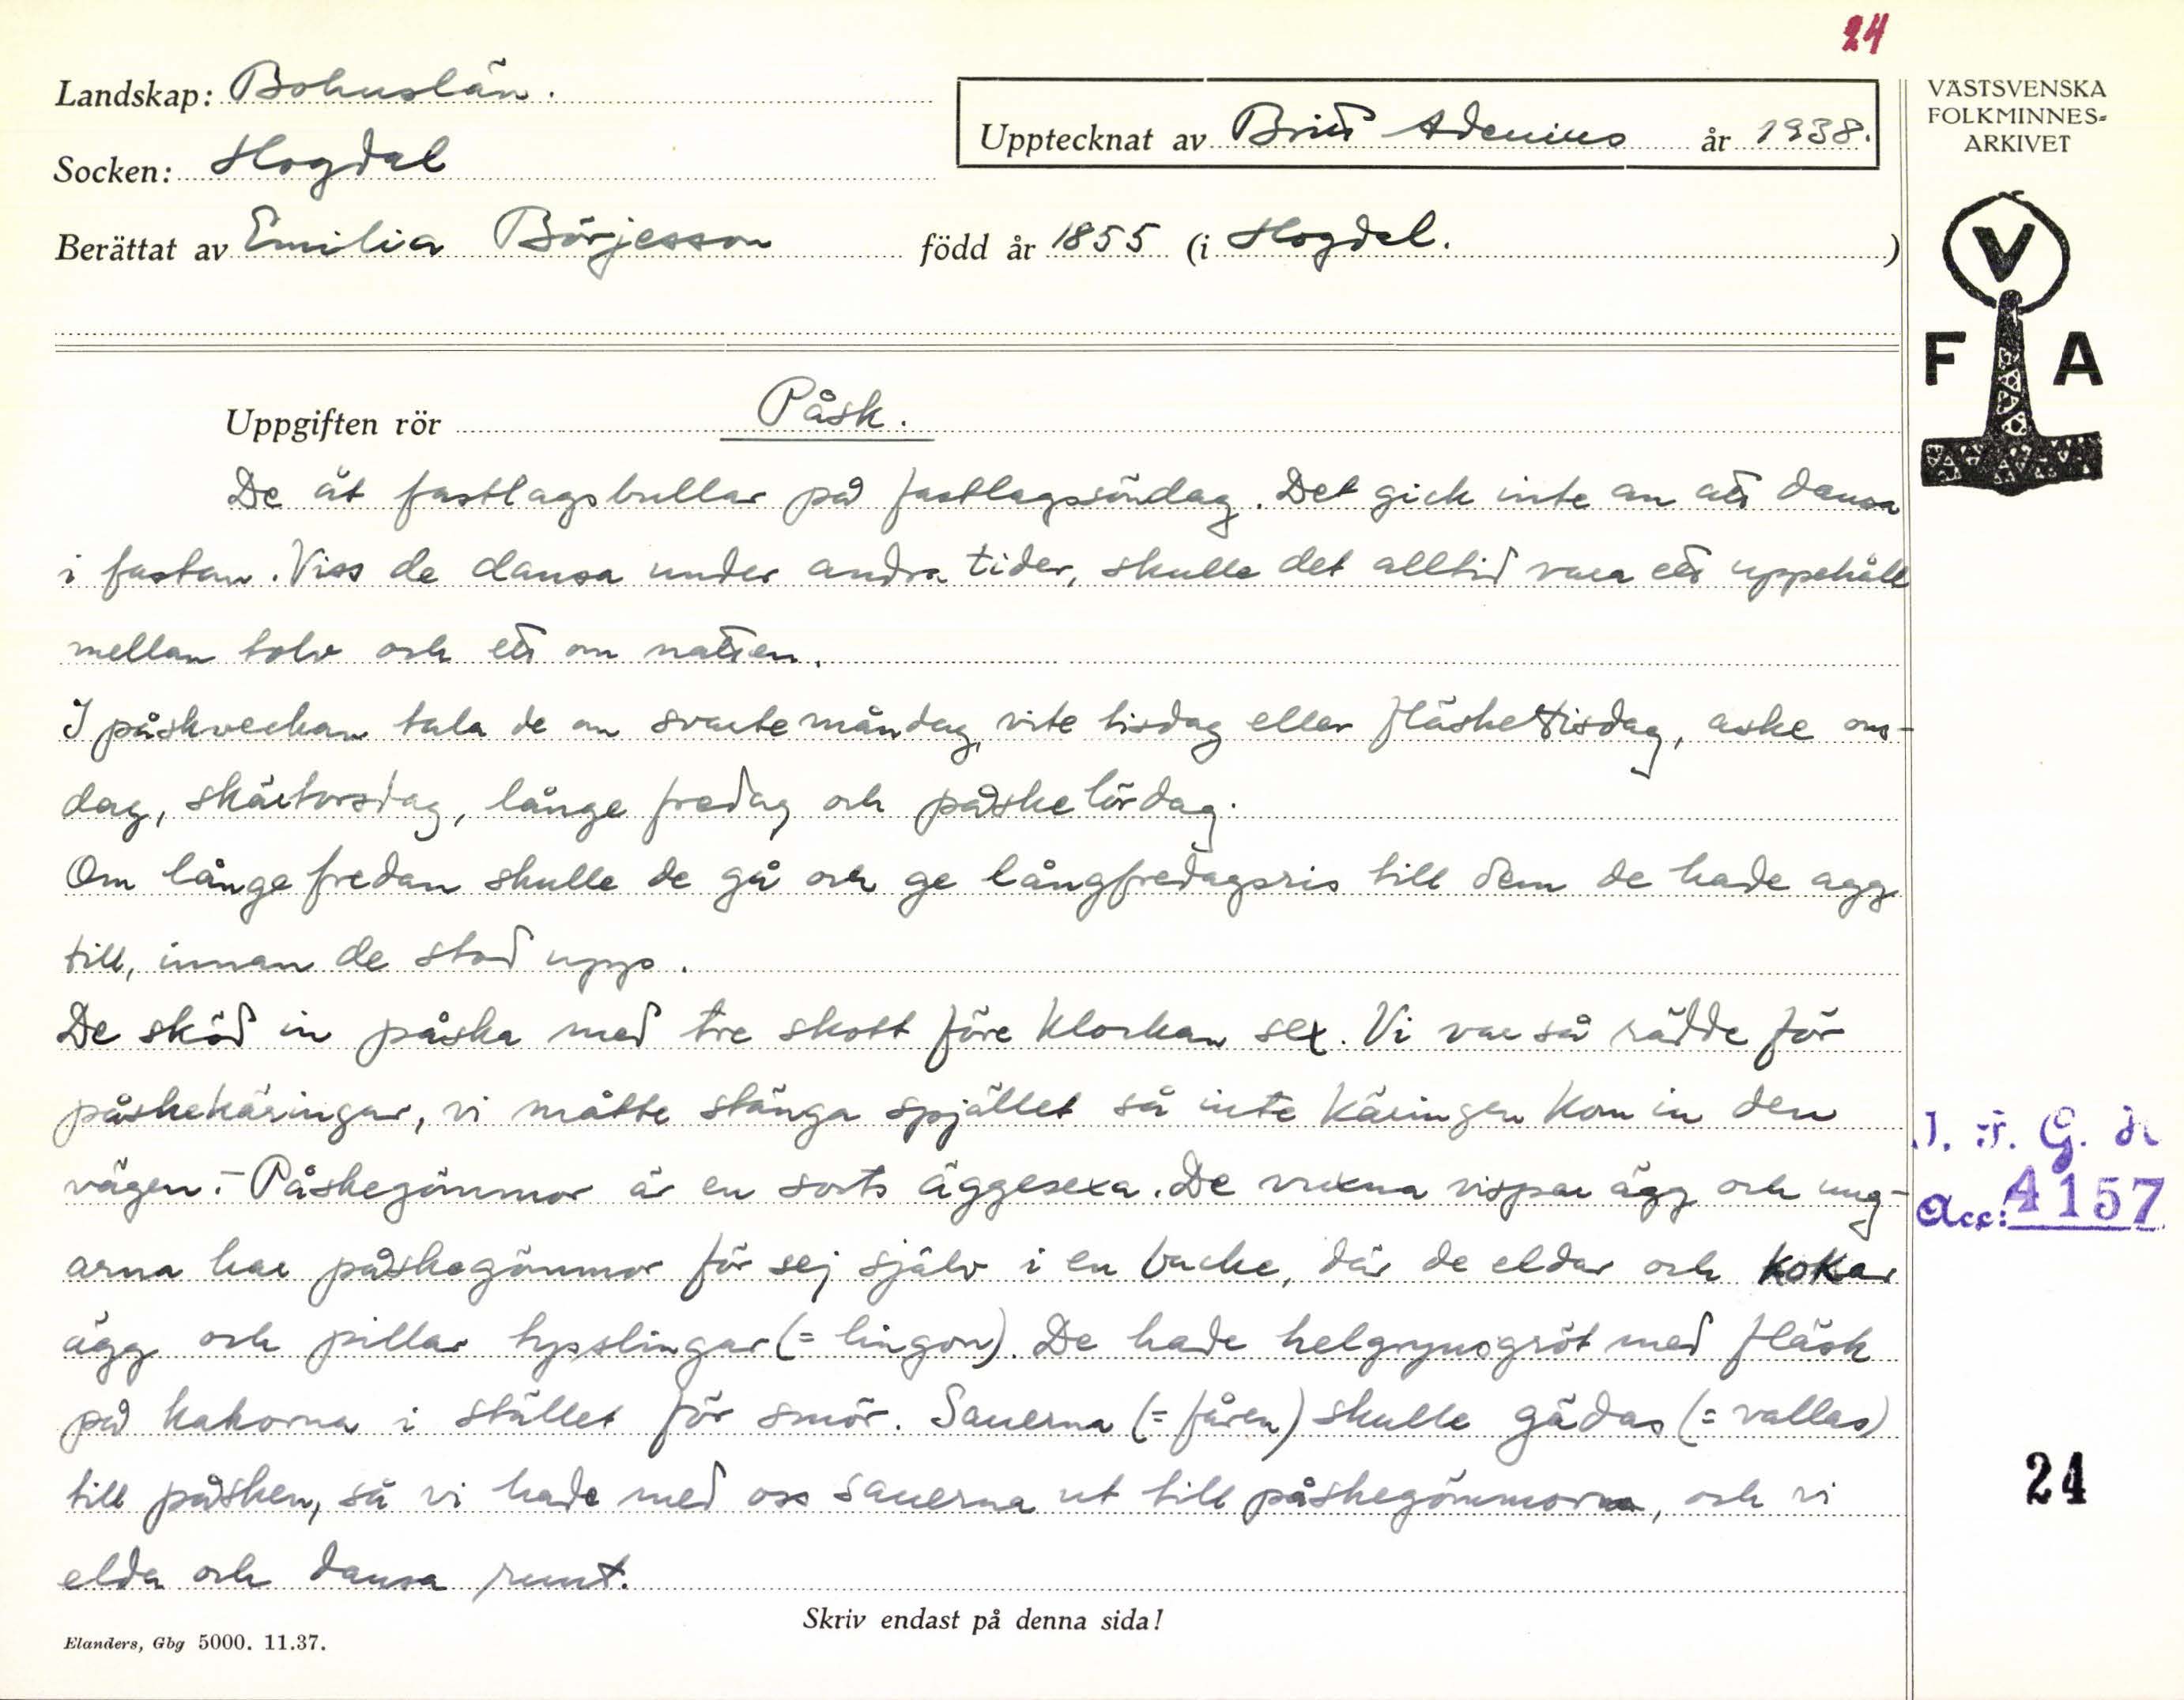 24
Landskap: Bohuslän.
Upptecknat av Britt Adenius år 1938.
Socken: Hogdal
Berättat av Emilia Börjesson född år 1855 (i Hogdal.)
VÄSTSVENSKA
FOLKMINNES-
ARKIVET
V
F A
Uppgiften rör Påsk.
De åt fastlagsbullar på fastlagssöndag. Det gick inte an att dansa
i fastan. Viss de dansa under andra tider, skulle det alltid vara ett uppehåll
mellan tolv och ett om natten.
I påskveckan tala de om svarte måndag, vite tisdag eller fläsketisdag, aske ons-
dag, skärtorsdag, långe fredag och påskelördag.
Om långefredan skulle de gå och ge långfredagsris till dem de hade agg
till, innan de stod upp.
De sköd in påska med tre skott före klockan sex. Vi var så rädde för
påskekäringar, vi måtte stänga spjället så inte käringen kom in den
vägen. - Påskegömmor är en sorts äggesexa. De vuxna vispar ägg och ung-
arna har påskegömmor för sej själv i en backe, där de eldar och kokar
ägg och pillar tysslingar (= lingon). De hade helgrynsgröt med fläsk
på kakorna i stället för smör. Sauerna (= fåren) skulle gädas (= vallas)
till påsken, så vi hade med oss sauerna ut till påskegömmorna, och vi
elda och dansa runt.
Skriv endast på denna sida!
Elanders, Gbg 5000. 11.37.
I. F. G. H
Acc: 4157
24